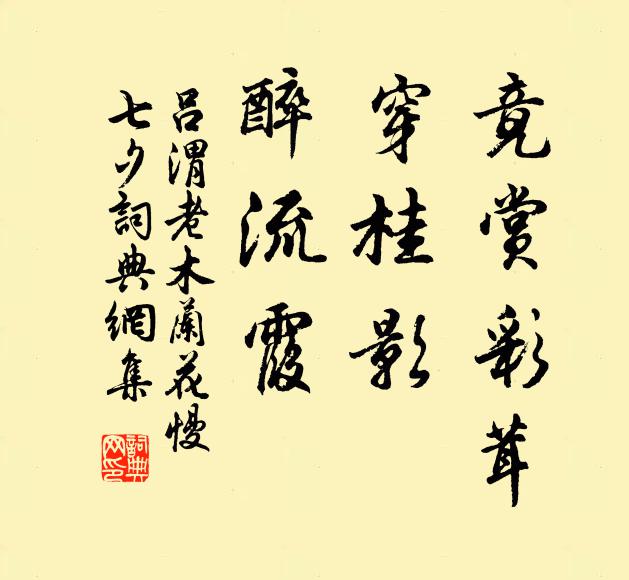 竟賞彩茸
穿桂影
醉流霞
呂渭老木蘭花慢
七夕詞典網集
詞典网印